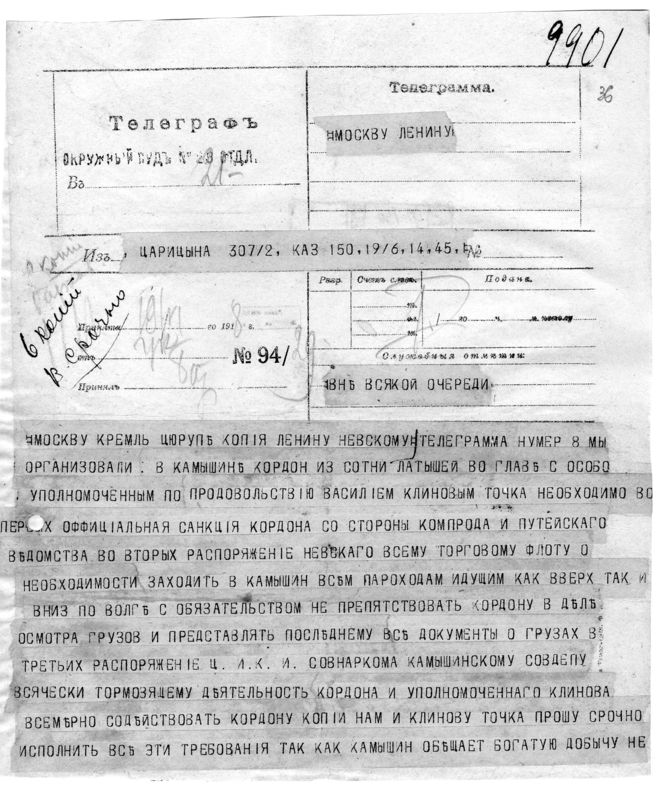 9901
36
Телеграфъ
ОКРУЖНЫЙ СУДЪ № 23 ОТДЛ.
Въ
Телеграмма.
МОСКВУ ЛЕНИНУ
Изъ , ЦАРИЦЫНА 307/2, КАЗ 150,19/6,14,45, №
6 копий
В. Срочно
Принята го 1918 г.
отъ
Принялъ
№ 94/
Разр. Счетъ словъ. Подана.
го ч. м. пополу
Служебныя отмѣтки:
ВНѢ ВСЯКОЙ ОЧЕРЕДИ
МОСКВУ КРЕМЛЬ ЦЮРУПѢ КОПІЯ ЛЕНИНУ НЕВСКОМУ ТЕЛЕГРАММА НУМЕР 8 МЫ
ОРГАНИЗОВАЛИ : В КАМЫШИНѢ КОРДОН ИЗ СОТНИ ЛАТЫШЕЙ ВО ГЛАВѢ С ОСОБО
УПОЛНОМОЧЕННЫМ ПО ПРОДОВОЛЬСТВІЮ ВАСИЛІЕМ КЛИНОВЫМ ТОЧКА НЕОБХОДИМО ВО
ПЕРВЫХ ОФФИЦІАЛЬНАЯ САНКЦІЯ КОРДОНА СО СТОРОНЫ КОМПРОДА И ПУТЕЙСКАГО
ВѢДОМСТВА ВО ВТОРЫХ РАСПОРЯЖЕНІЕ НЕВСКАГО ВСЕМУ ТОРГОВОМУ ФЛОТУ О
НЕОБХОДИМОСТИ ЗАХОДИТЬ В КАМЫШИН ВСѢМ ПАРОХОДАМ ИДУЩИМ КАК ВВЕРХ ТАК И
ВНИЗ ПО ВОЛГѢ С ОБЯЗАТЕЛЬСТВОМ НЕ ПРЕПЯТСТВОВАТЬ КОРДОНУ В ДѢЛѢ
ОСМОТРА ГРУЗОВ И ПРЕДСТАВЛЯТЬ ПОСЛѢДНЕМУ ВСѢ ДОКУМЕНТЫ О ГРУЗАХ В
ТРЕТЬИХ РАСПОРЯЖЕНІЕ Ц. И.К. И. СОВНАРКОМА КАМЫШИНСКОМУ СОВДЕПУ
ВСЯЧЕСКИ ТОРМОЗЯЩЕМУ ДѢЯТЕЛЬНОСТЬ КОРДОНА И УПОЛНОМОЧЕННАГО КЛИНОВА
ВСЕМѢРНО СОДѢЙСТВОВАТЬ КОРДОНУ КОПІИ НАМ И КЛИНОВУ ТОЧКА ПРОШУ СРОЧНО
ИСПОЛНИТЬ ВСѢ ЭТИ ТРЕБОВАНІЯ ТАК КАК КАМЫШИН ОБѢЩАЕТ БОГАТУЮ ДОБЫЧУ НЕ